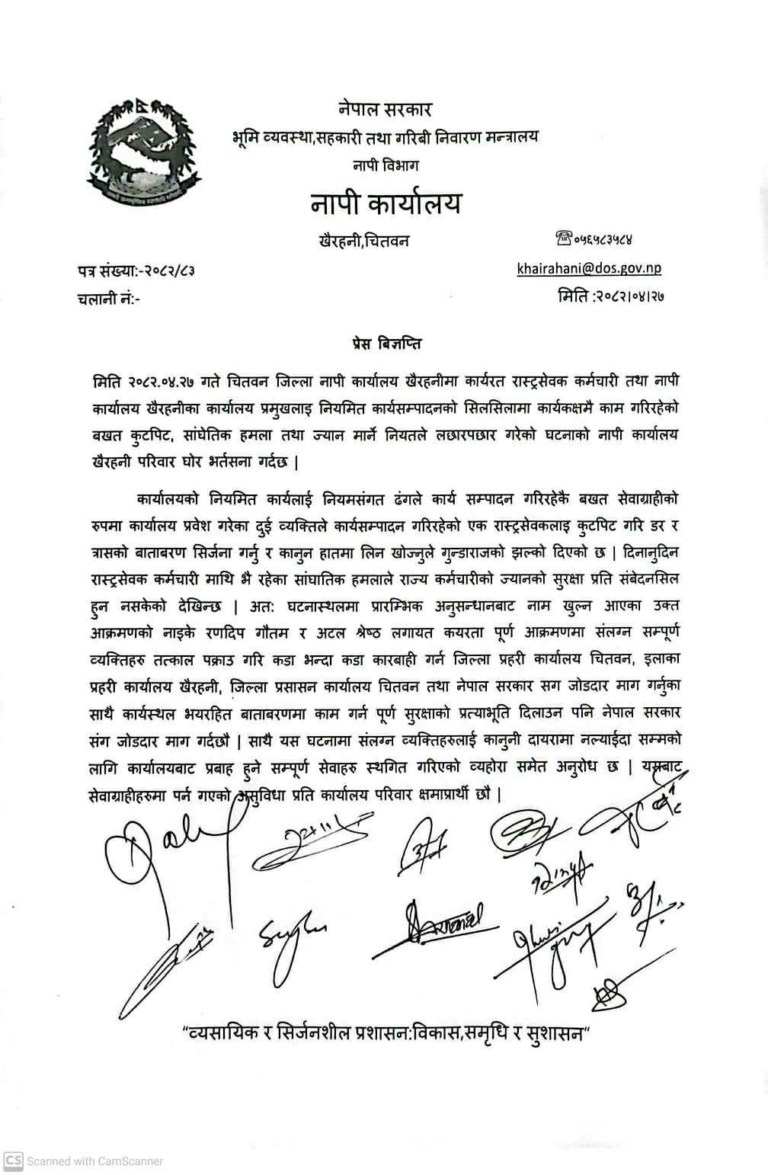 नेपाल सरकार
भूमि व्यवस्था,सहकारी तथा गरिबी निवारण मन्त्रालय
नापी विभाग
नापी कार्यालय
खैरहनी,चितवन
☎०५६५८३५८४
पत्र संख्या:-२०८२/८३
khairahani@dos.gov.np
चलानी नं:-
मिति :२०८२।०४।२७
प्रेस बिज्ञप्ति
मिति २०८२.०४.२७ गते चितवन जिल्ला नापी कार्यालय खैरहनीमा कार्यरत रास्ट्रसेवक कर्मचारी तथा नापी
कार्यालय खैरहनीका कार्यालय प्रमुखलाइ नियमित कार्यसम्पादनको सिलसिलामा कार्यकक्षमै काम गरिरहेको
बखत कुटपिट, सांघेतिक हमला तथा ज्यान मार्ने नियतले लछारपछार गरेको घटनाको नापी कार्यालय
खैरहनी परिवार घोर भर्तसना गर्दछ |
कार्यालयको नियमित कार्यलाई नियमसंगत ढंगले कार्य सम्पादन गरिरहेकै बखत सेवाग्राहीको
रुपमा कार्यालय प्रवेश गरेका दुई व्यक्तिले कार्यसम्पादन गरिरहेको एक रास्ट्रसेवकलाइ कुटपिट गरि डर र
त्रासको बाताबरण सिर्जना गर्नु र कानुन हातमा लिन खोज्नुले गुन्डाराजको झल्को दिएको छ | दिनानुदिन
रास्ट्रसेवक कर्मचारी माथि भै रहेका सांघातिक हमलाले राज्य कर्मचारीको ज्यानको सुरक्षा प्रति संबेदनसिल
हुन नसकेको देखिन्छ | अत: घटनास्थलमा प्रारम्भिक अनुसन्धानबाट नाम खुल्न आएका उक्त
आक्रमणको नाइके रणदिप गौतम र अटल श्रेष्ठ लगायत कयरता पूर्ण आक्रमणमा संलग्न सम्पूर्ण
व्यक्तिहरु तत्काल पक्राउ गरि कडा भन्दा कडा कारबाही गर्न जिल्ला प्रहरी कार्यालय चितवन, इलाका
प्रहरी कार्यालय खैरहनी, जिल्ला प्रसासन कार्यालय चितवन तथा नेपाल सरकार सग जोडदार माग गर्नुका
साथै कार्यस्थल भयरहित बाताबरणमा काम गर्न पूर्ण सुरक्षाको प्रत्याभूति दिलाउन पनि नेपाल सरकार
संग जोडदार माग गर्दछौ | साथै यस घटनामा संलग्न व्यक्तिहरुलाई कानुनी दायरामा नल्याईदा सम्मको
लागि कार्यालयबाट प्रबाह हुने सम्पूर्ण सेवाहरु स्थगित गरिएको व्यहोरा समेत अनुरोध छ | यसबाट
सेवाग्राहीहरुमा पर्न गएको असुविधा प्रति कार्यालय परिवार क्षमाप्रार्थी छौ |
“व्यसायिक र सिर्जनशील प्रशासन:विकास,समृधि र सुशासन”
CS Scanned with CamScanner